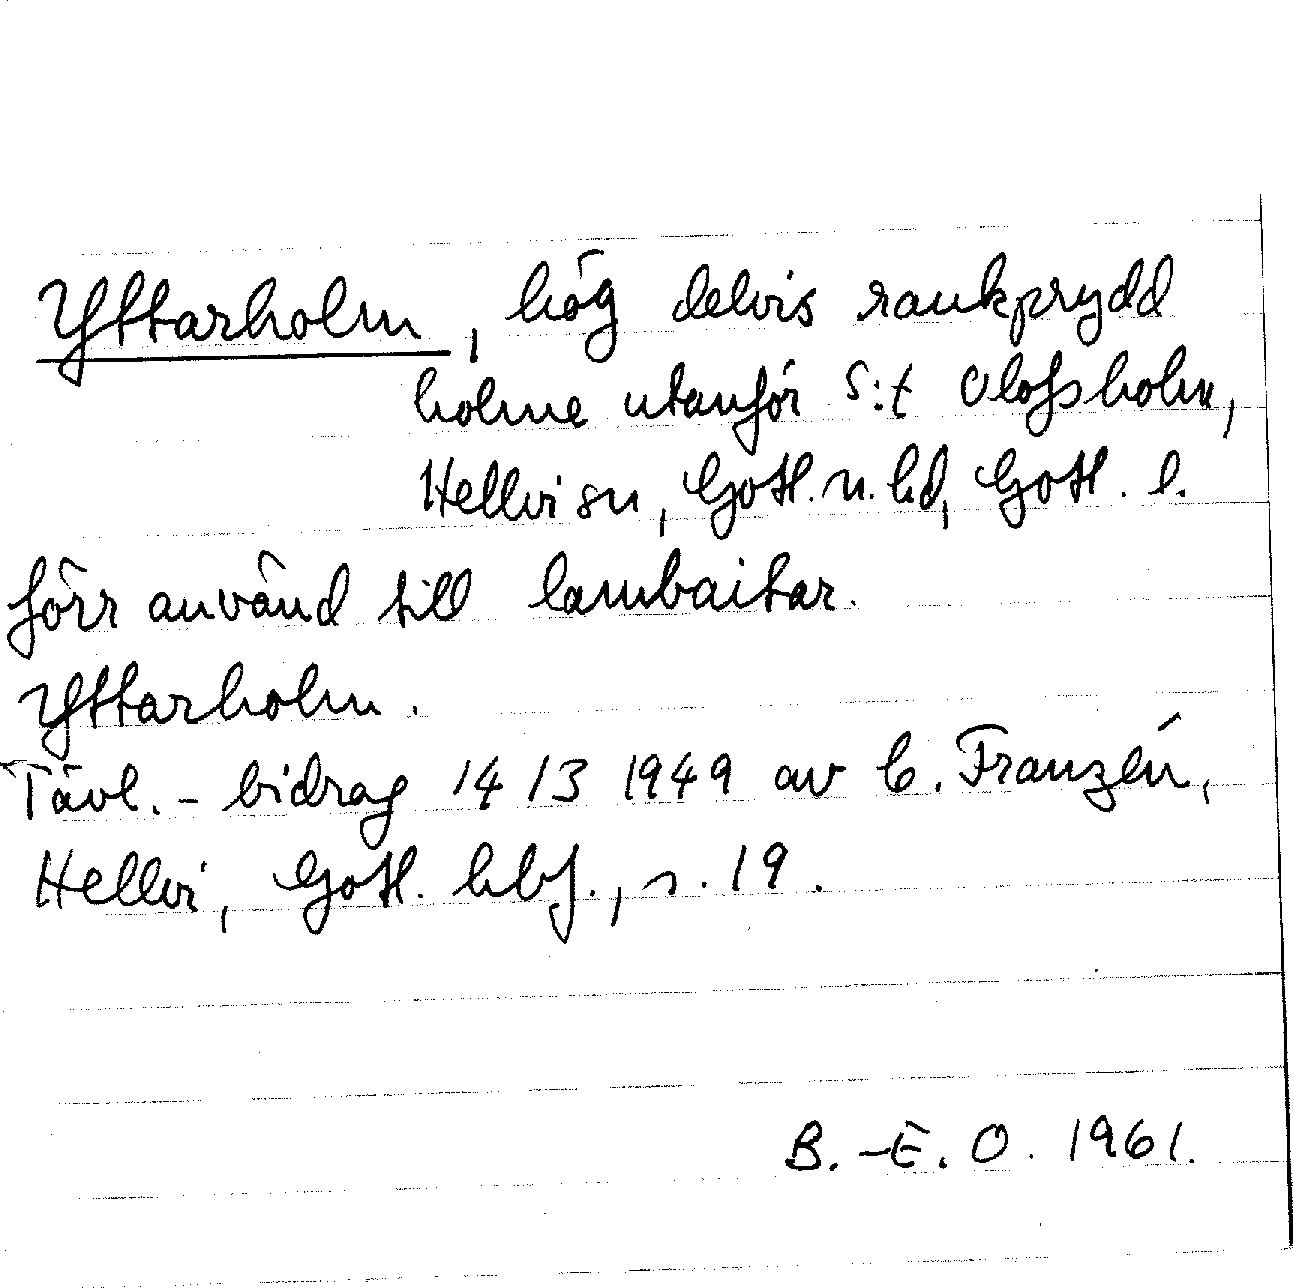 Yttarholm, hög delvis raukprydd
holme utanför S:t Olofsholm,
Hellvi sn, Gotl. n. hd, Gotl. l.
förr använd till lambaitar.
Yttarholm.
Tävl. - bidrag 14/3 1949 av C. Franzén,
Hellvi, Gotl. hbf., s. 19.
B.-E. O. 1961.